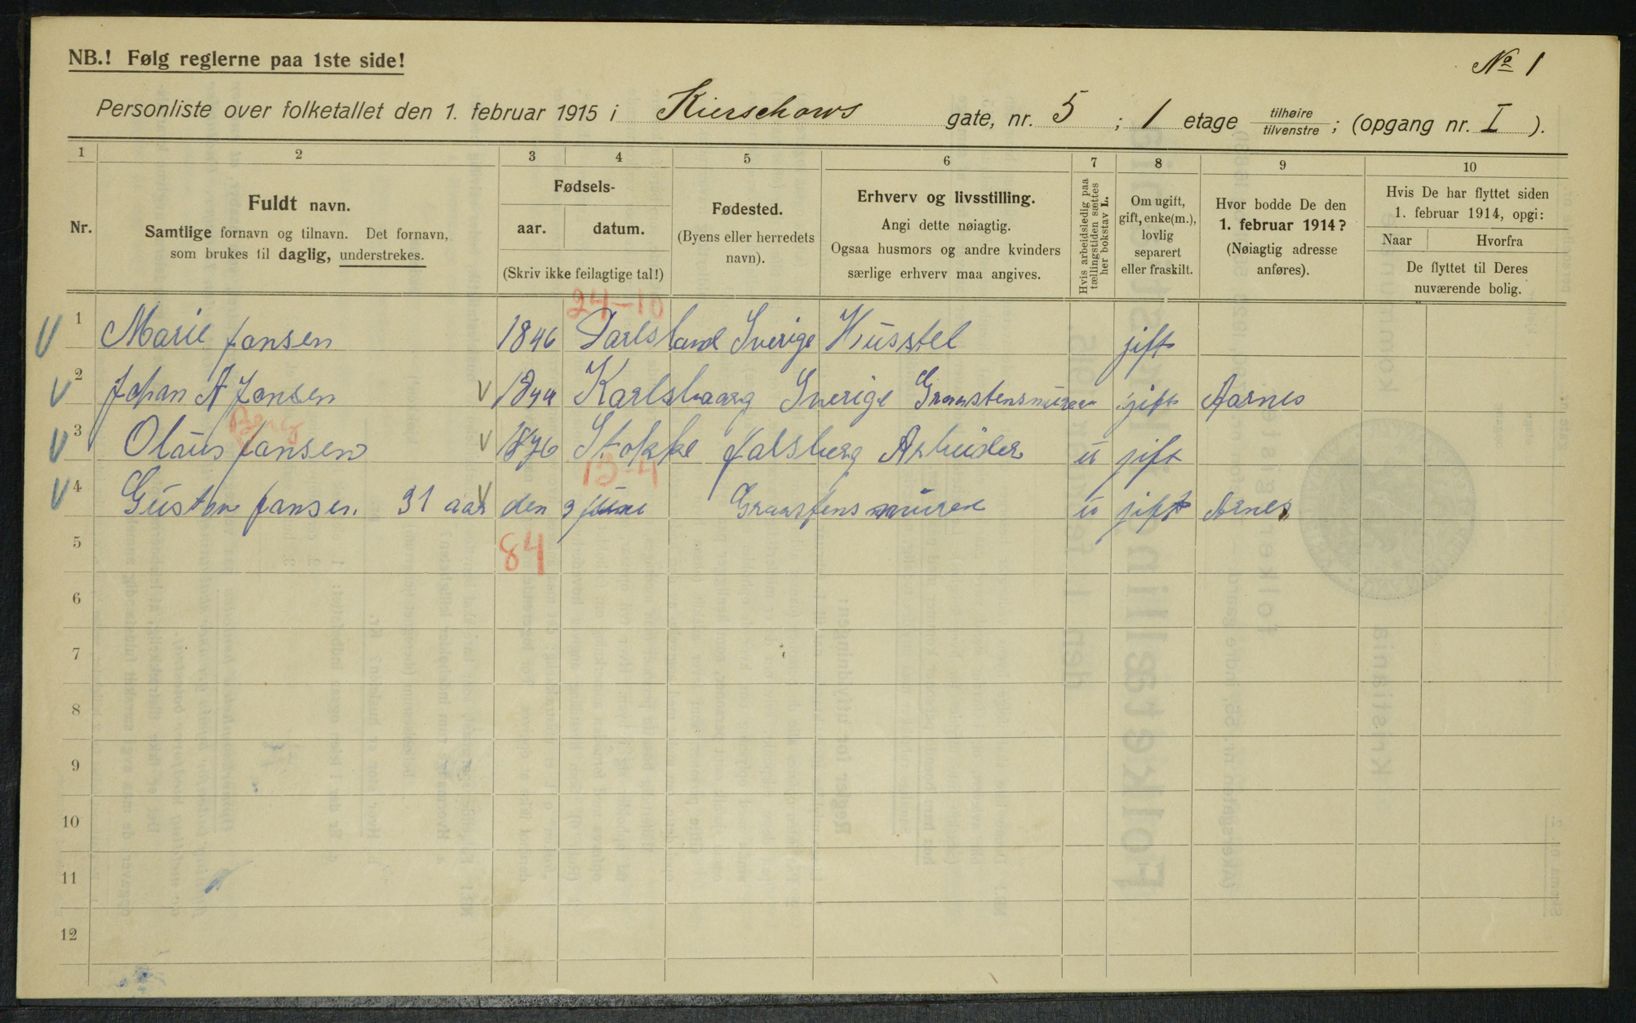 NB.! Følg reglerne paa 1ste side!
No 1
Personliste over folketallet den 1. februar 1915 i Kierschows gate, nr. 5 ; 1 etage tilhøire tilvenstre ; (opgang nr. I ).
1 2 3 4 5 6 7 8 9 10
Nr.
Fuldt navn.
Samtlige fornavn og tilnavn. Det fornavn,
som brukes til daglig, understrekes.
Fødsels-
aar. datum.
(Skriv ikke feilagtige tal!)
Fødested.
(Byens eller herredets
navn).
Erhverv og livsstilling.
Angi dette nøiagtig.
Ogsaa husmors og andre kvinders
særlige erhverv maa angives.
Hvis arbeidsledig paa
tællingstiden sættes
her bokstav L.
Om ugift,
gift, enke(m.),
lovlig
separert
eller fraskilt.
Hvor bodde De den
1. februar 1914?
(Nøiagtig adresse
anføres).
Hvis De har flyttet siden
1. februar 1914, opgi:
Naar Hvorfra
De flyttet til Deres
nuværende bolig.
24-10
1 Marie Jansen 1846 Darlsland Sverige Husstel jift
2 Johan A Jansen 1844 Karlsbaarg Sverige Graastensmurer jift Aarnes
3 Olaus Jansen 1876 Stokke Jalsberg Arbeider u jift
13-4
4 Gustav Jansen. 31 aar den 9 june Graastens muren u jift Arnes
5 84
6
7
8
9
10
11
12